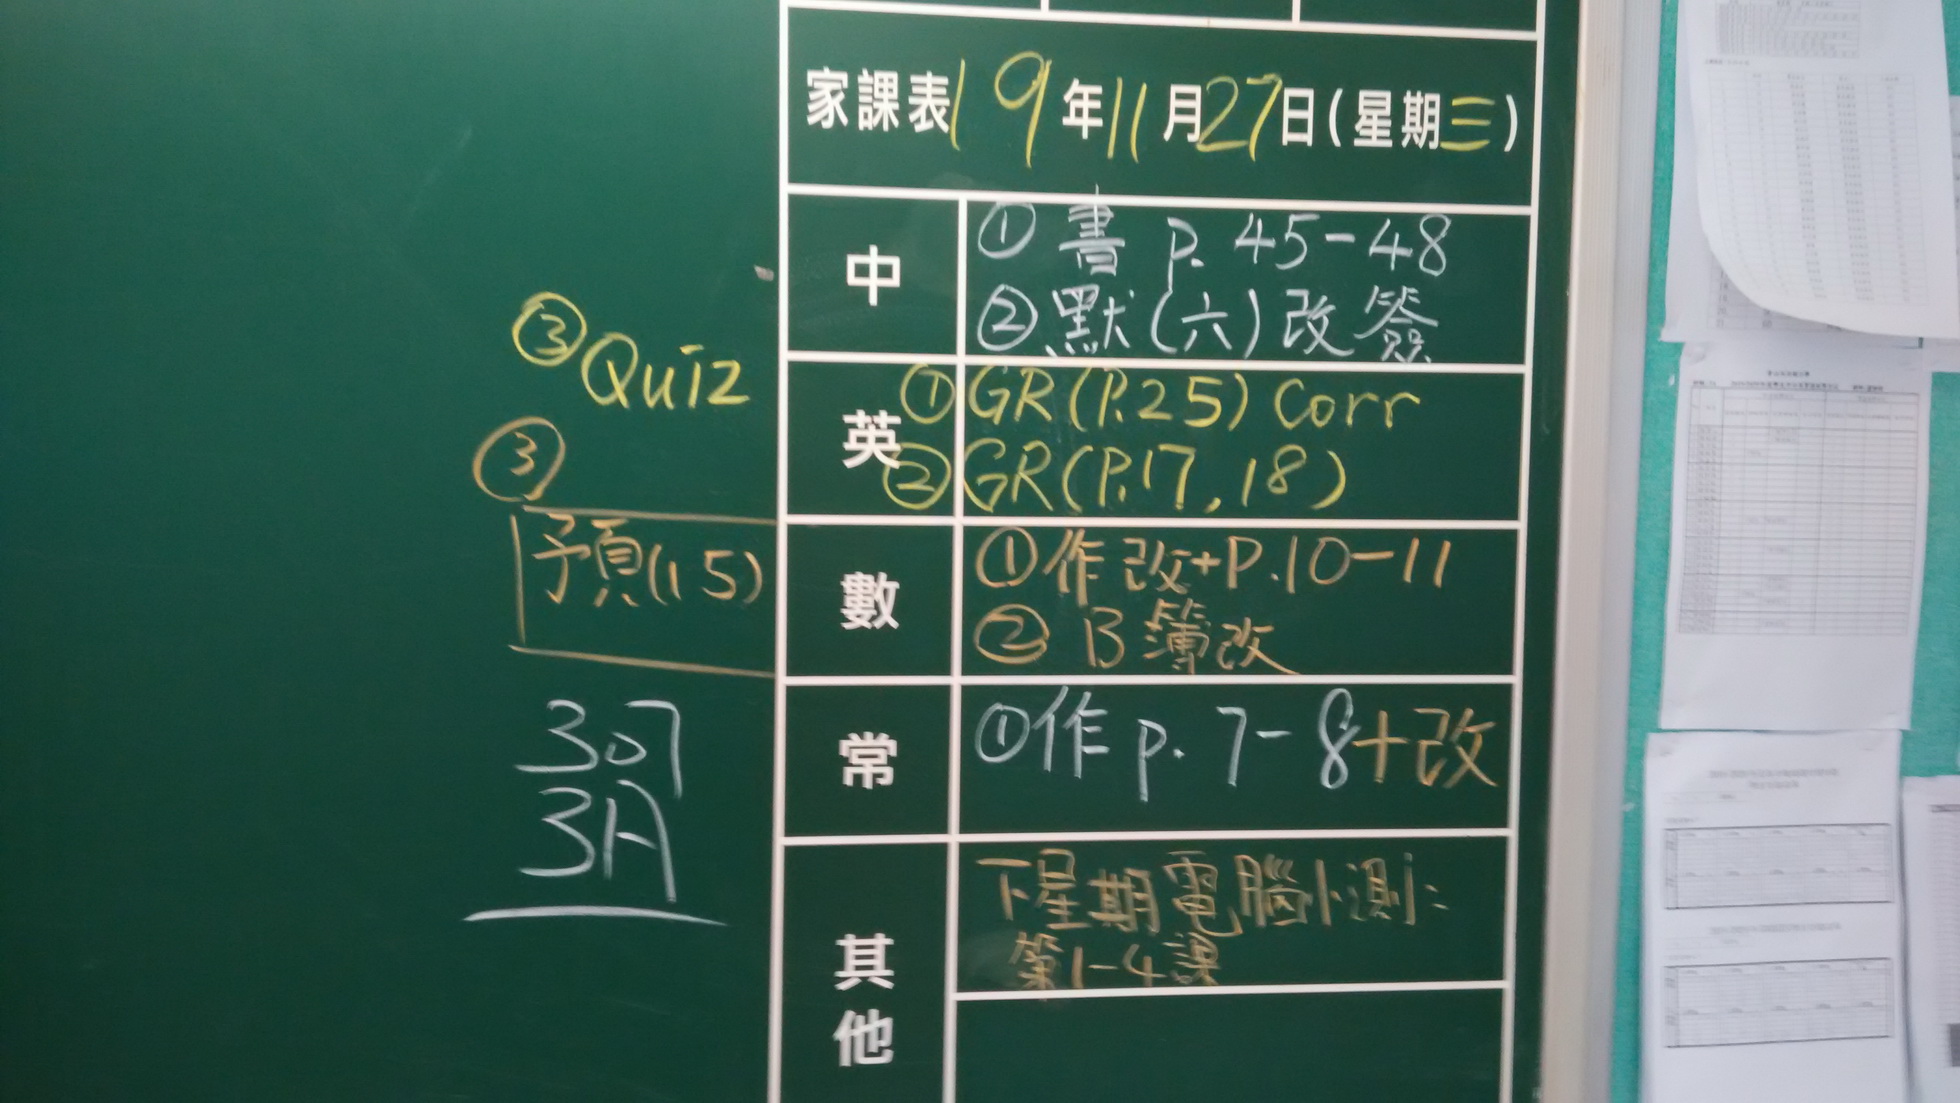 家課表 19年11月27日(星期三)
中
① 書 p. 45-48
② 默(六)改簽
英
① GR(P.25) Corr
② GR(P.17, 18)
③ Quiz
數
① 作改+P.10-11
② B簿改
③
預(15)
常
① 作 p. 7-8+改
307
3A
其他
下星期電腦小測:
第1-4課